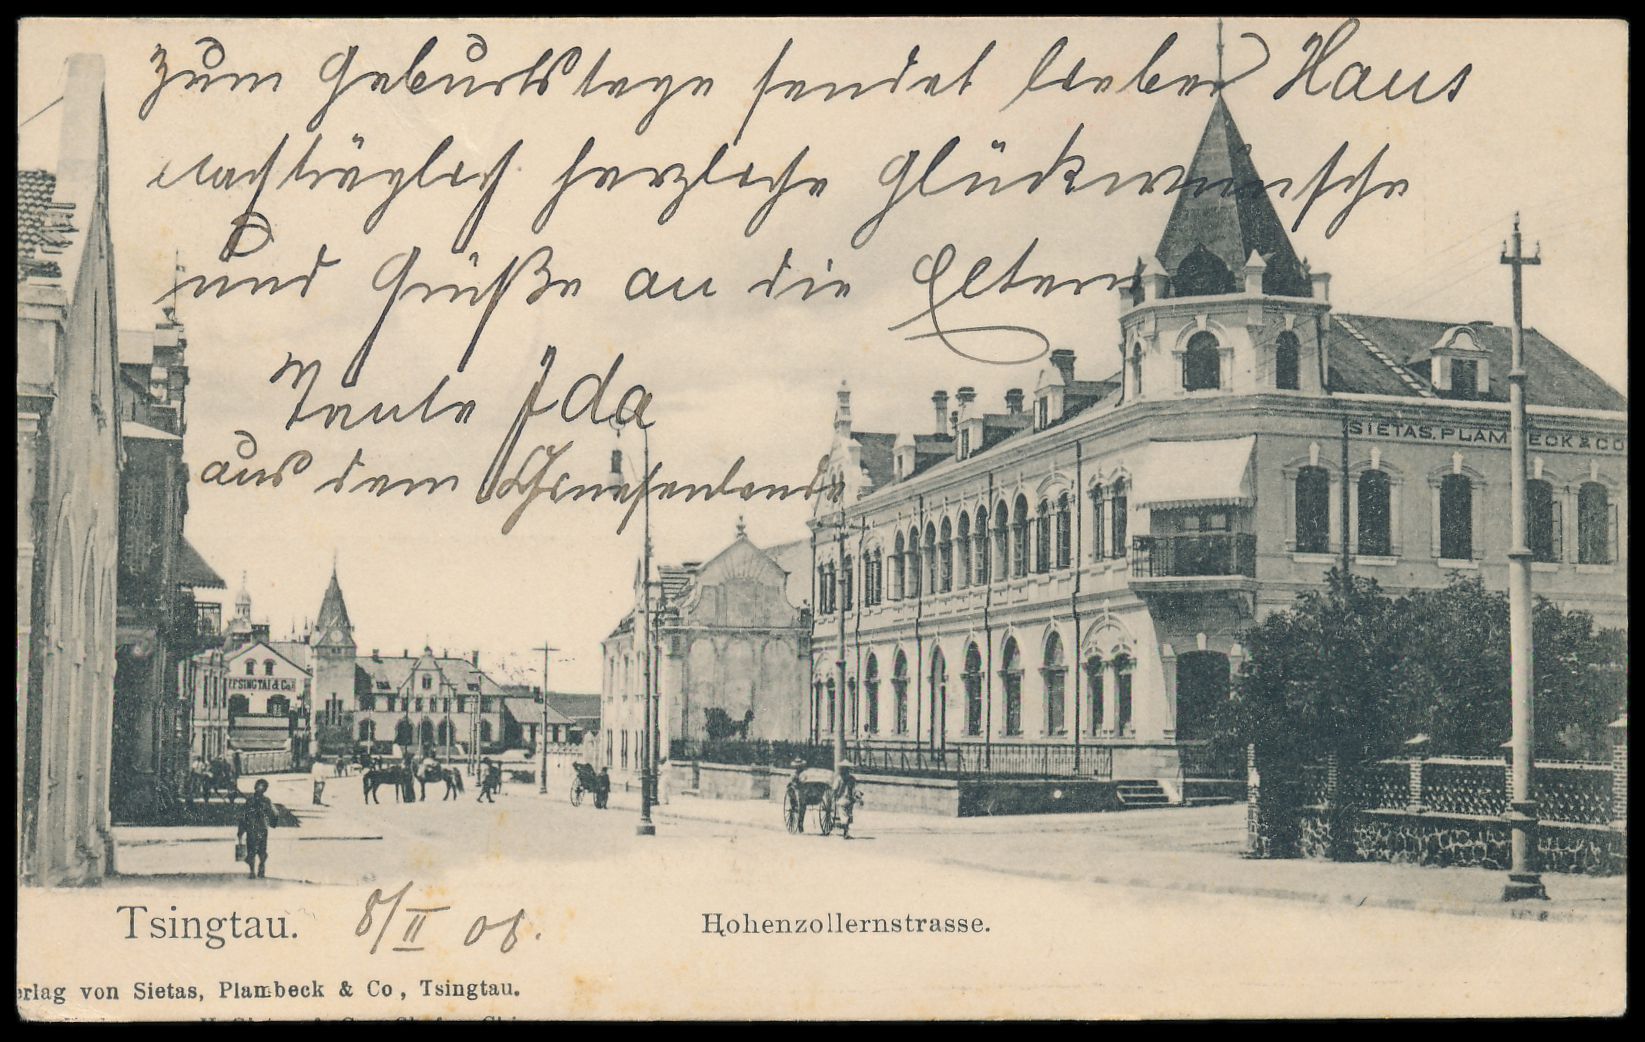 Zum Geburtstage sendet lieber Haus
nachträglich herzliche Glückwünsche
und Grüße an die Eltern
Tante Ida
aus dem Chinesenlande
SIETAS, PLAMBECK & CO
TSINGTAI & Co
Tsingtau. 8/II 06.
Hohenzollernstrasse.
erlag von Sietas, Plambeck & Co, Tsingtau.